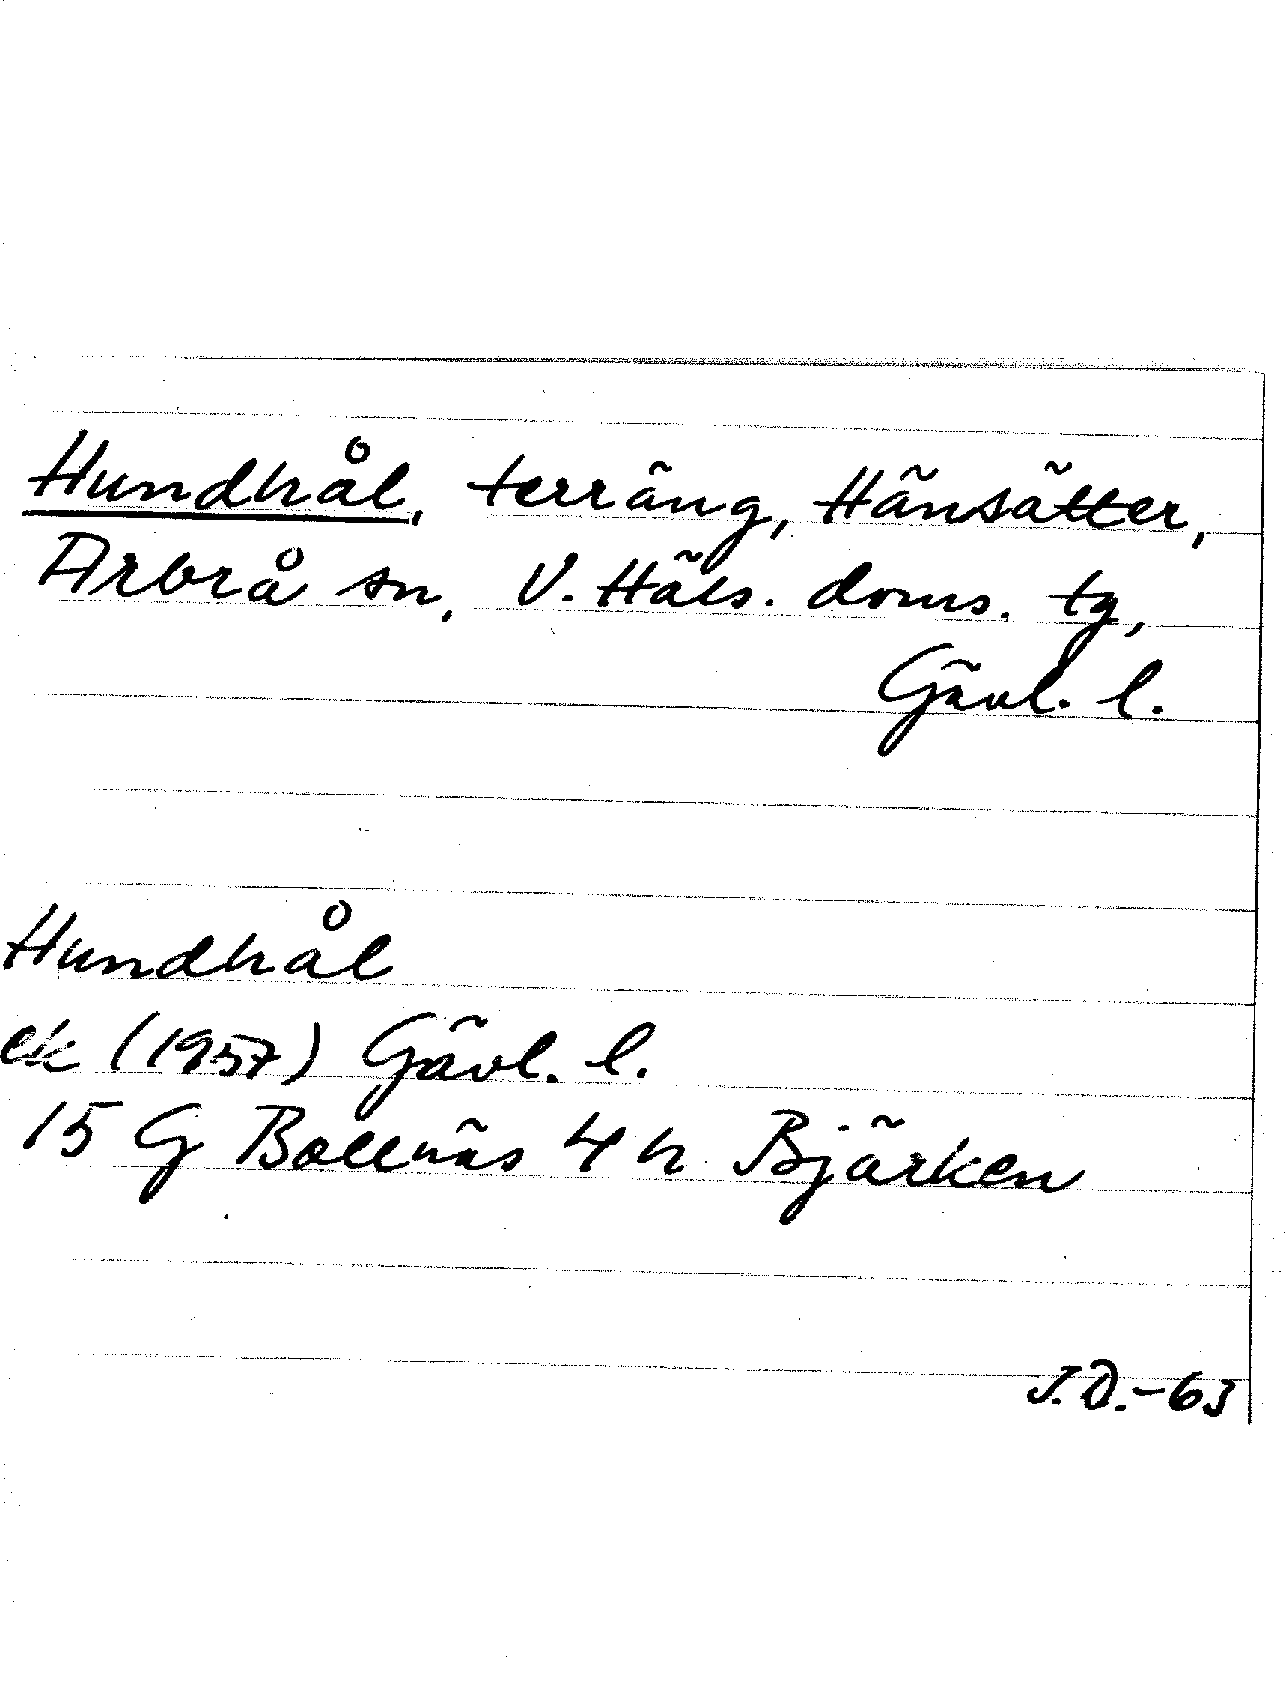 Hundhål, terräng, Hänsätter,
Arbrå sn, V. Häls. doms. tg,
Gävl. l.
Hundhål
ek (1957) Gävl. l.
15 G Bollnäs 4 h Bjärken
J.D.-63